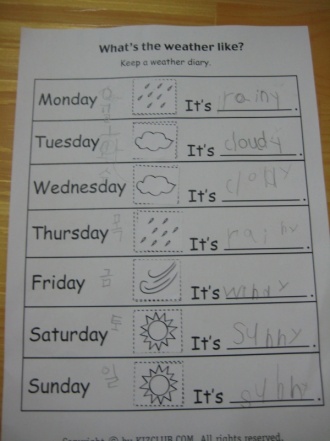 What's the weather like?
Keep a weather diary.
Monday 월 It's rainy.
Tuesday 화 It's cloudy.
Wednesday 수 It's clouy.
Thursday 목 It's rainy.
Friday 금 It's windy.
Saturday 토 It's sunny.
Sunday 일 It's sunny.
Copyright © by KIZCLUB.COM. All rights reserved.